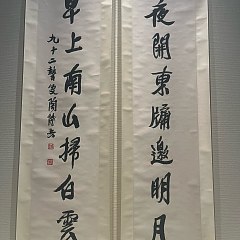 夜開東牖邀明月
早上南山掃白雲
九十二叟蘭